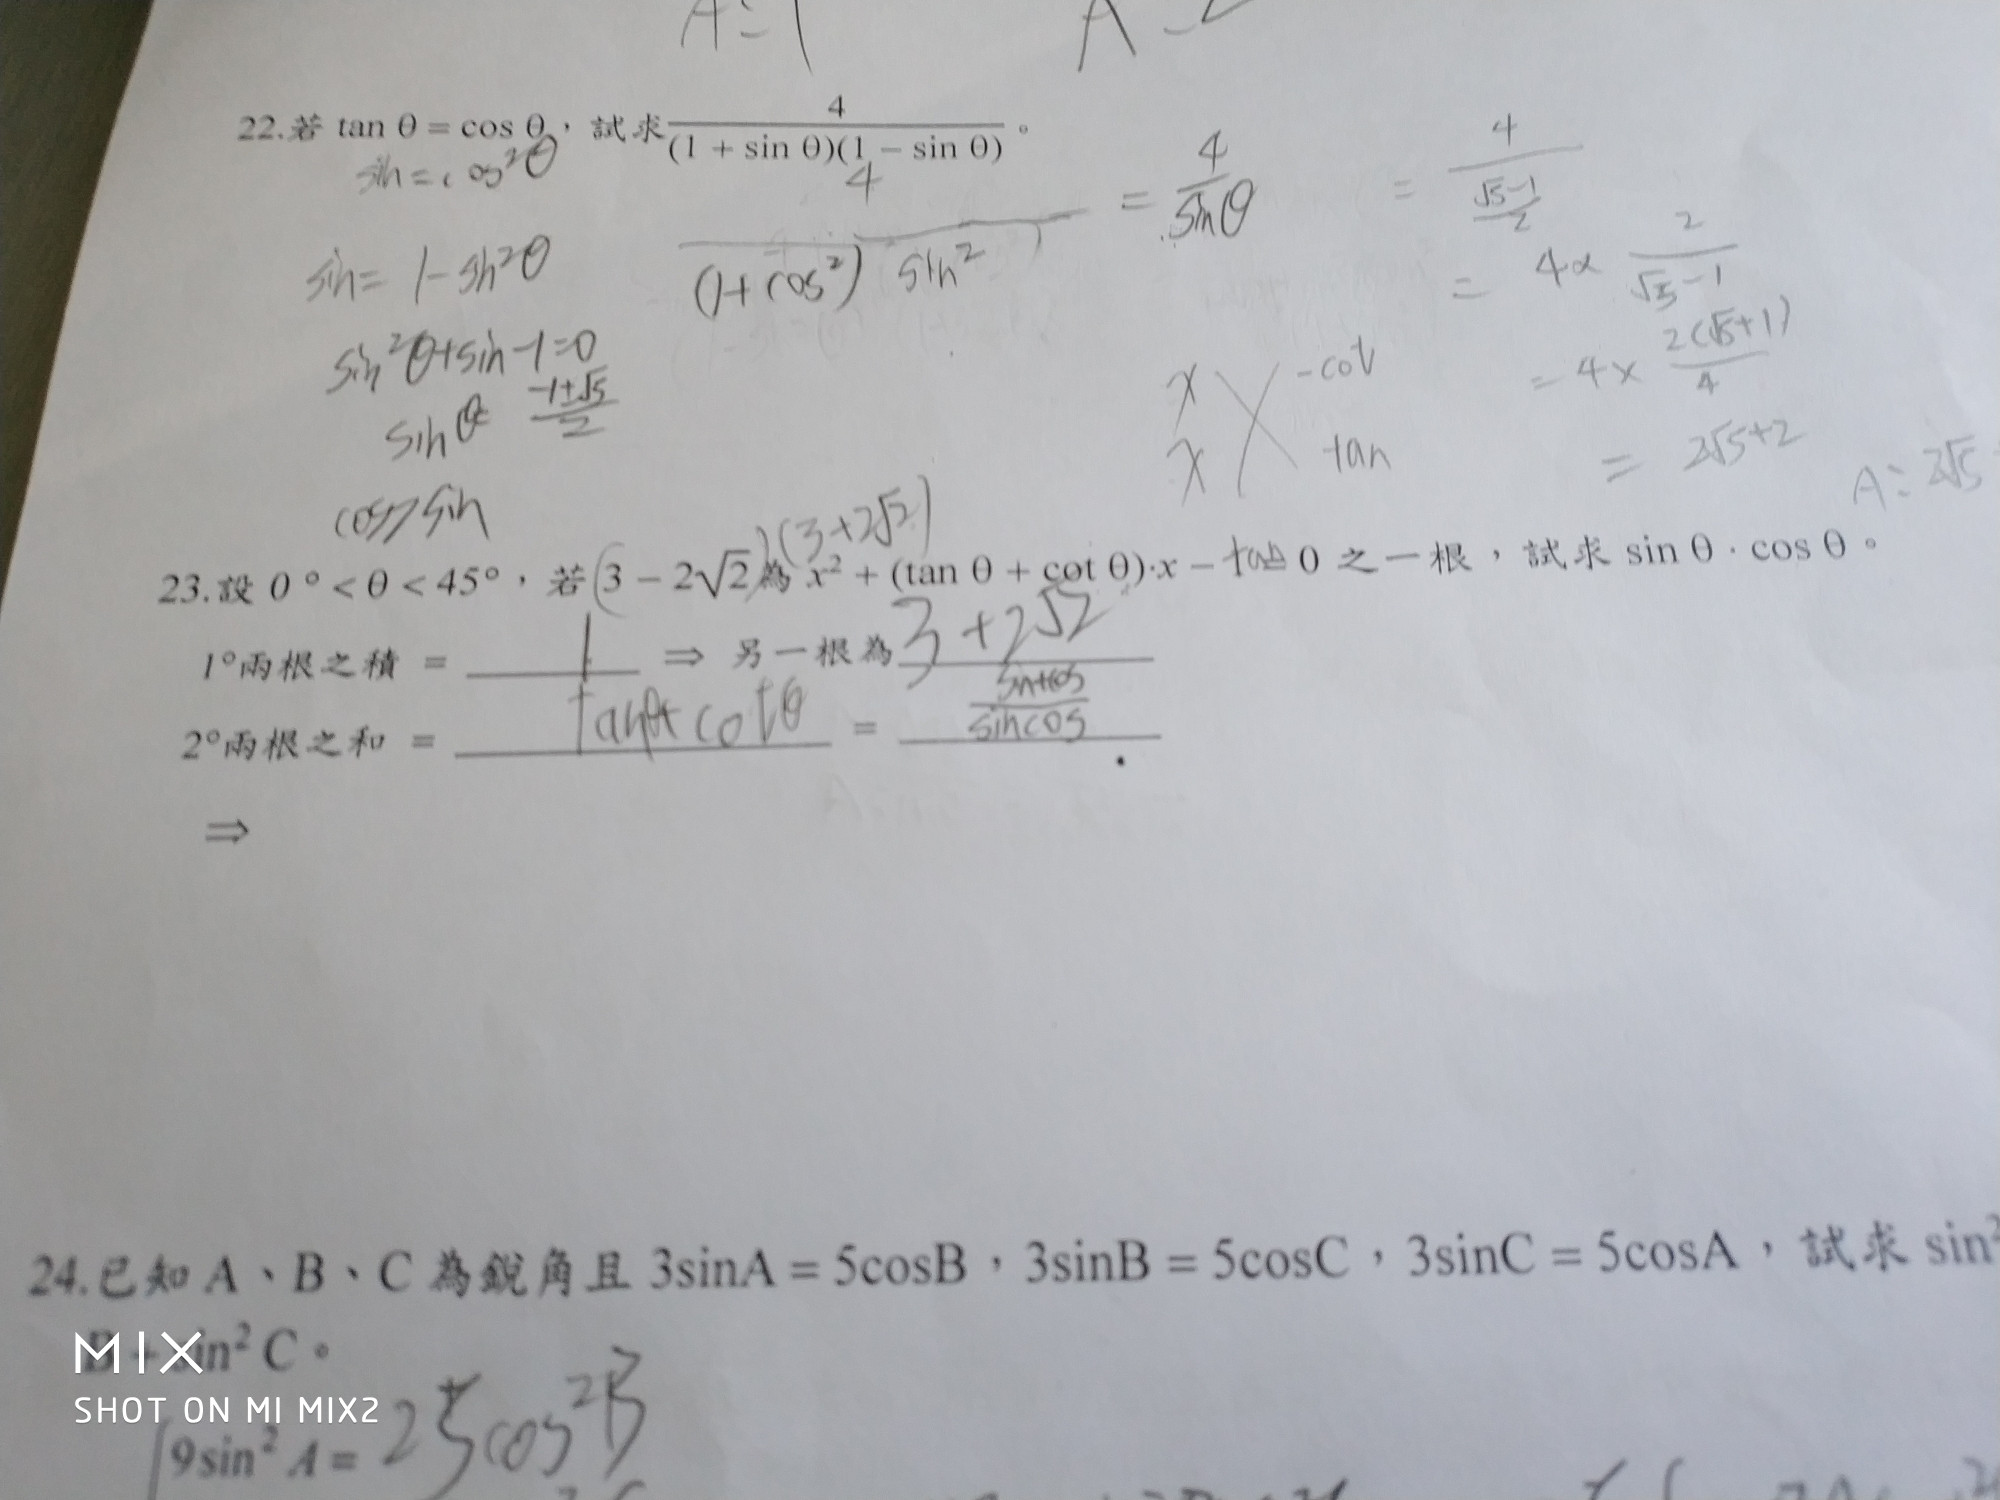 A=1 A
22.若 tan θ = cos θ，試求 4/((1 + sin θ)(1 − sin θ))。
sin = cos²θ
4/((1+cos²) sin²) = 4/sinθ = 4/((√5-1)/2)
sin = 1-sin²θ
= 4× 2/(√5-1)
sin²θ+sin-1=0
= 4× 2(√5+1)/4
sinθ= (-1±√5)/2
x -cot
x tan
= 2√5+2
A= 2√5
cos>sin
(3+2√2)
23.設 0°<θ<45°，若(3 − 2√2)為 x² + (tan θ + cot θ)·x − 0 之一根，試求 sin θ · cos θ。
1°兩根之積 = 1 ⇒ 另一根為 3+2√2
2°兩根之和 = tanθ+cotθ = sin+cos/sincos
⇒
24.已知 A、B、C 為銳角且 3sinA = 5cosB，3sinB = 5cosC，3sinC = 5cosA，試求 sin²
B + sin² C。
MIX
SHOT ON MI MIX2
9sin² A = 25cos²B